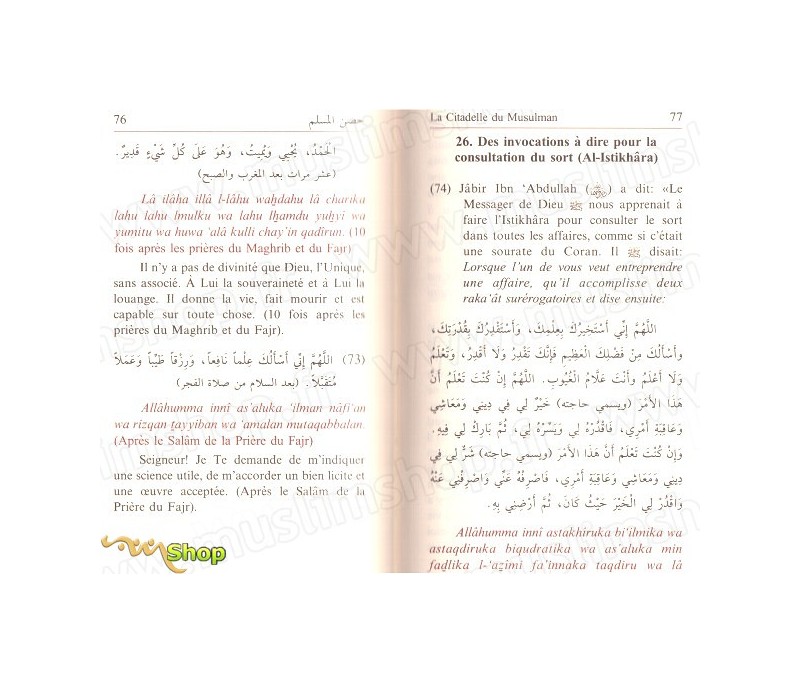 76
حصن المسلم
الْحَمْدُ، يُحْيِي وَيُمِيتُ، وَهُوَ عَلَى كُلِّ شَيْءٍ قَدِيرٌ.
(عشر مرات بعد المغرب والصبح)
Lâ ilâha illâ l-lâhu waḥdahu lâ charika
lahu lahu lmulku wa lahu lḥamdu yuḥyî wa
yumitu wa huwa ‘alâ kulli chay’in qadîrun. (10
fois après les prières du Maghrib et du Fajr)
Il n’y a pas de divinité que Dieu, l’Unique,
sans associé. À Lui la souveraineté et à Lui la
louange. Il donne la vie, fait mourir et est
capable sur toute chose. (10 fois après les
prières du Maghrib et du Fajr).
(73) اللَّهُمَّ إِنِّي أَسْأَلُكَ عِلْماً نَافِعاً، وَرِزْقاً طَيِّباً وَعَمَلاً
مُتَقَبَّلاً. (بعد السلام من صلاة الفجر)
Allâhumma innî as’aluka ‘ilman nâfi‘an
wa rizqan ṭayyiban wa ‘amalan mutaqabbalan.
(Après le Salâm de la Prière du Fajr)
Seigneur! Je Te demande de m’indiquer
une science utile, de m’accorder un bien licite et
et une œuvre acceptée. (Après le Salâm de la
Prière du Fajr).
Shop
La Citadelle du Musulman
77
26. Des invocations à dire pour la
consultation du sort (Al-Istikhâra)
(74) Jâbir Ibn ‘Abdullah () a dit: «Le
Messager de Dieu ﷺ nous apprenait à
faire l’Istikhâra pour consulter le sort
dans toutes les affaires, comme si c’était
une sourate du Coran. Il ﷺ disait:
Lorsque l’un de vous veut entreprendre
une affaire, qu’il accomplisse deux
raka‘ât surérogatoires et dise ensuite:
اللَّهُمَّ إِنِّي أَسْتَخِيرُكَ بِعِلْمِكَ، وَأَسْتَقْدِرُكَ بِقُدْرَتِكَ،
وَأَسْأَلُكَ مِنْ فَضْلِكَ الْعَظِيمِ فَإِنَّكَ تَقْدِرُ وَلَا أَقْدِرُ، وَتَعْلَمُ
وَلَا أَعْلَمُ وَأَنْتَ عَلَّامُ الْغُيُوبِ. اللَّهُمَّ إِنْ كُنْتَ تَعْلَمُ أَنَّ
هَذَا الأَمْرَ (ويسمي حاجته) خَيْرٌ لِي فِي دِينِي وَمَعَاشِي
وَعَاقِبَةِ أَمْرِي، فَاقْدُرْهُ لِي وَيَسِّرْهُ لِي، ثُمَّ بَارِكْ لِي فِيهِ.
وَإِنْ كُنْتَ تَعْلَمُ أَنَّ هَذَا الأَمْرَ (ويسمي حاجته) شَرٌّ لِي فِي
دِينِي وَمَعَاشِي وَعَاقِبَةِ أَمْرِي، فَاصْرِفْهُ عَنِّي وَاصْرِفْنِي عَنْهُ
وَاقْدُرْ لِي الْخَيْرَ حَيْثُ كَانَ، ثُمَّ أَرْضِنِي بِهِ.
Allâhumma innî astakhîruka bi‘ilmika wa
astaqdiruka biqudratika wa as’aluka min
faḍlika l-‘aẓîmi fa’innaka taqdiru wa lâ